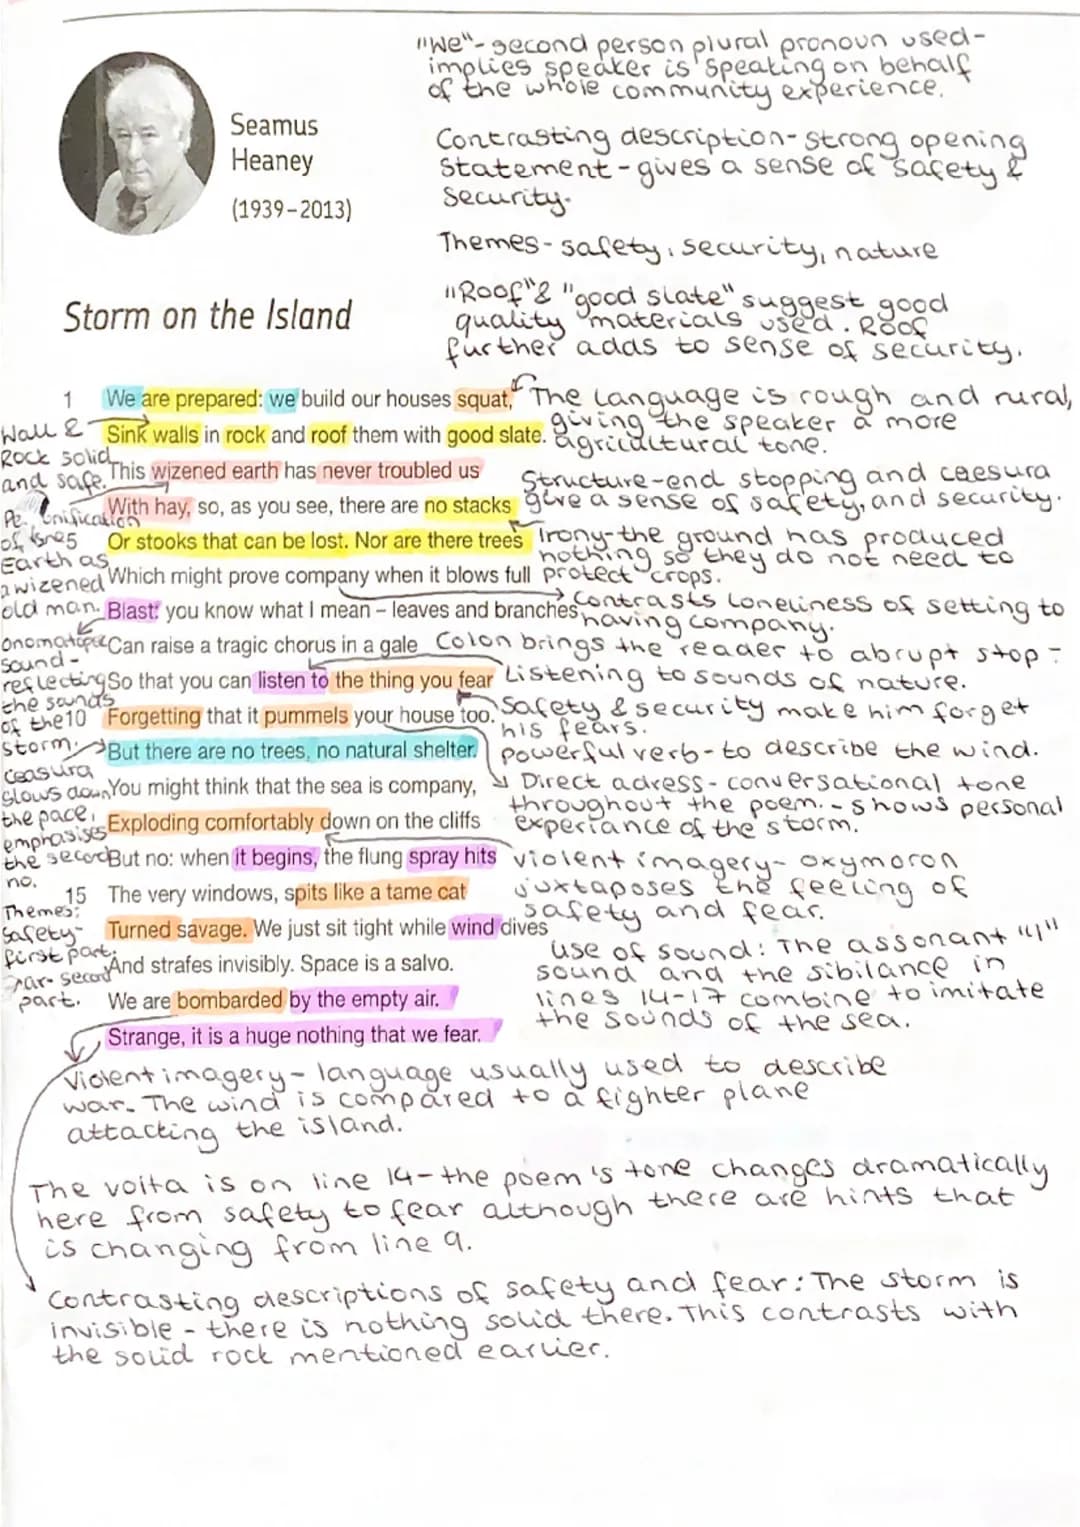 "We"- second person plural pronoun used-
implies speaker is speaking on behalf
of the whole community experience.
Seamus
Heaney
(1939–2013)
Contrasting description- strong opening
statement - gives a sense of safety &
security.
Themes- safety, security, nature
Storm on the Island
"Roof" & "good slate" suggest good
quality materials used. Roof
further adds to sense of security.
1 We are prepared: we build our houses squat,
Sink walls in rock and roof them with good slate.
This wizened earth has never troubled us
With hay, so, as you see, there are no stacks
5 Or stooks that can be lost. Nor are there trees
Which might prove company when it blows full
Blast: you know what I mean – leaves and branches
Can raise a tragic chorus in a gale
So that you can listen to the thing you fear
10 Forgetting that it pummels your house too.
But there are no trees, no natural shelter.
You might think that the sea is company,
Exploding comfortably down on the cliffs
But no: when it begins, the flung spray hits
15 The very windows, spits like a tame cat
Turned savage. We just sit tight while wind dives
And strafes invisibly. Space is a salvo.
We are bombarded by the empty air.
Strange, it is a huge nothing that we fear.
The language is rough and rural,
giving the speaker a more
agricultural tone.
Structure-end stopping and caesura
give a sense of safety, and security.
Irony-the ground has produced
nothing so they do not need to
protect crops.
Contrasts loneliness of setting to
having company.
Colon brings the reader to abrupt stop-
Listening to sounds of nature.
Safety & security make him forget
his fears.
powerful verb- to describe the wind.
Direct adress- conversational tone
throughout the poem. - shows personal
experiance of the storm.
violent imagery- oxymoron
juxtaposes the feeling of
safety and fear.
use of sound: The assonant "i"
sound and the sibilance in
lines 14-17 combine to imitate
the sounds of the sea.
Wall &
Rock solid
and safe.
of
Earth as
a wizened
old man.
sound-
reflecting
the sounds
of the
storm.
Ceasura
slows down
the pace,
emphasises
the second
no.
Themes:
Safety-
first part.
second
part.
Violent imagery- language usually used to describe
war. The wind is compared to a fighter plane
attacking the island.
The volta is on line 14- the poem's tone changes dramatically
here from safety to fear although there are hints that
is changing from line 9.
Contrasting descriptions of safety and fear: The storm is
invisible - there is nothing solid there. This contrasts with
the solid rock mentioned earlier.